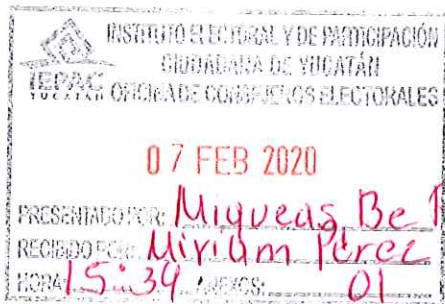 INSTITUTO ELECTORAL Y DE PARTICIPACIÓN
CIUDADANA DE YUCATÁN
IEPAC
YUCATÁN
OFICINA DE CONSEJEROS ELECTORALES
07 FEB 2020
PRESENTADO POR: Miqueas Be
RECIBIDO POR: Miriam Pérez
HORA: 15:34 ANEXOS: 01